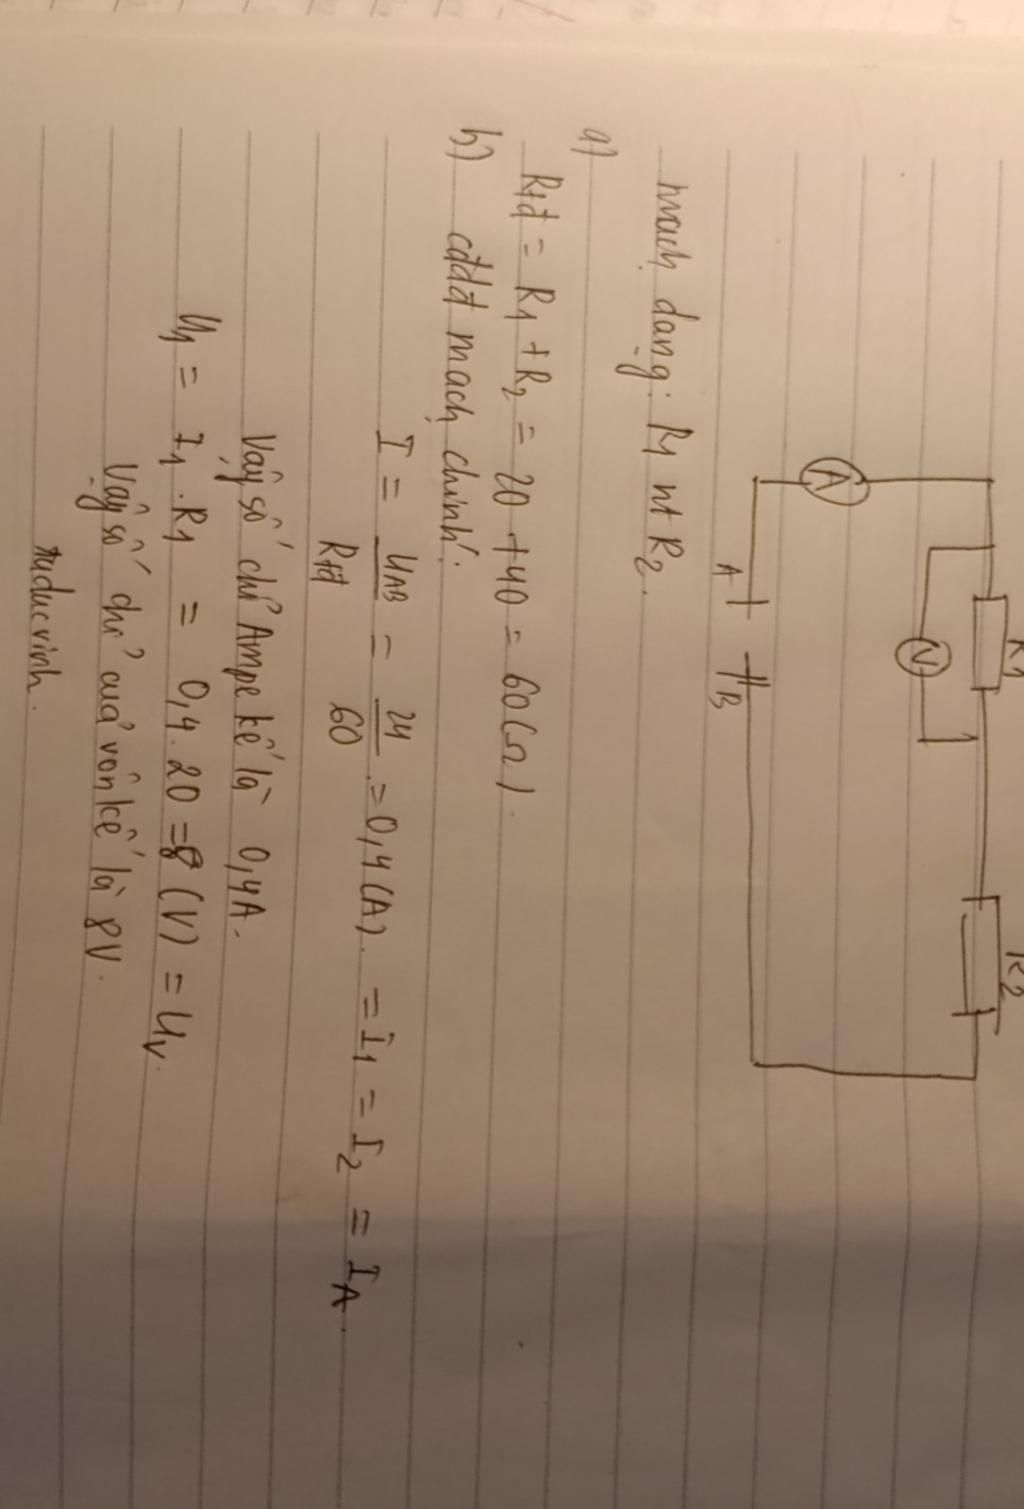 R1
R2
A
V
A
B
mạch dạng: R1 nt R2.
a)
Rtđ = R1 + R2 = 20 + 40 = 60(Ω).
b) cđdđ mạch chính:
I = UAB/Rtđ = 24/60 = 0,4(A). = I1 = I2 = IA.
Vậy số chỉ Ampe kế là 0,4A.
U1 = I1.R1 = 0,4.20 = 8 (V) = UV.
Vậy số chỉ của vôn kế là 8V.